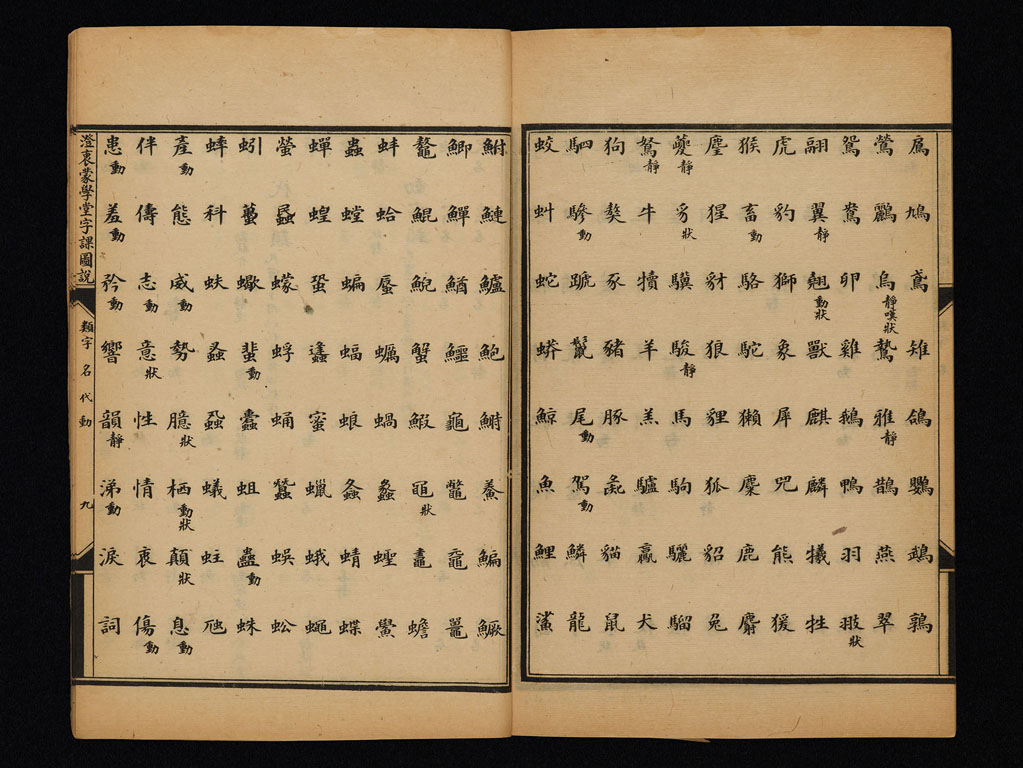 鳩鳶雉鴿鸚鵡鶉
鶯鸝烏靜嘆狀鷙雅靜鵲燕翠
鴛鴦卵雞鵝鴨羽翄狀
翮翼靜翹動狀獸麒麟犧牲
虎豹獅象犀兕熊猨
猴畜動駱駝獺麋鹿麝
麞猩豺狼貍狐貂兔
夔靜豸狀驥駿靜馬駒驪騮
駑靜牛犢羊羔驢羸犬
狗獒豕豬豚彘貓鼠
駟驂動蹏鬣尾動駕動鱗龍
蛟虯蛇蟒鯨魚鯉鯊
鮒鰱鱸鮑鰣鮝鯿鱖
鯽鱓鰌鱷龜鼈黿鼉
鼇鯤鯢蟹鰕黽狀鼃蟾
蚌蛤蜃蠣蝸蠡蟶鱟
蟲螳蝙蝠蜋螽蜻蝶
蟬蝗蛩蜜蠟蛾蠅
螢蠓蜉蛹蠶蜈蚣
蚓蠆蠍蜚動蠹蛆蠱動蛛
蟀科蚨蝨蟻蛀虺
產動態威動勢臆狀栖動狀顛狀息動
伴儔志動意狀性情衷傷動
患動羞動矜動響韻靜涕動淚詞
澄衷蒙學堂字課圖說 類字 名代動 九